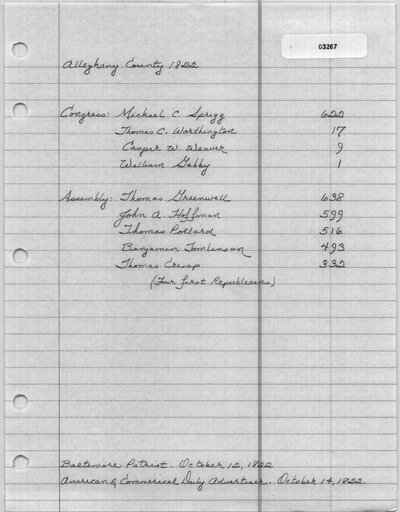 03267
Alleghany County 1822
Congress: Michael C. Sprigg 622
Thomas C. Worthington 17
Casper W. Weaver 9
William Gabby 1
Assembly: Thomas Greenwell 638
John A. Hoffman 599
Thomas Pollard 516
Benjamin Tomlinson 493
Thomas Cresap 332
(Four first Republicans)
Baltimore Patriot. October 12, 1822
American & Commercial Daily Advertiser. October 14, 1822.